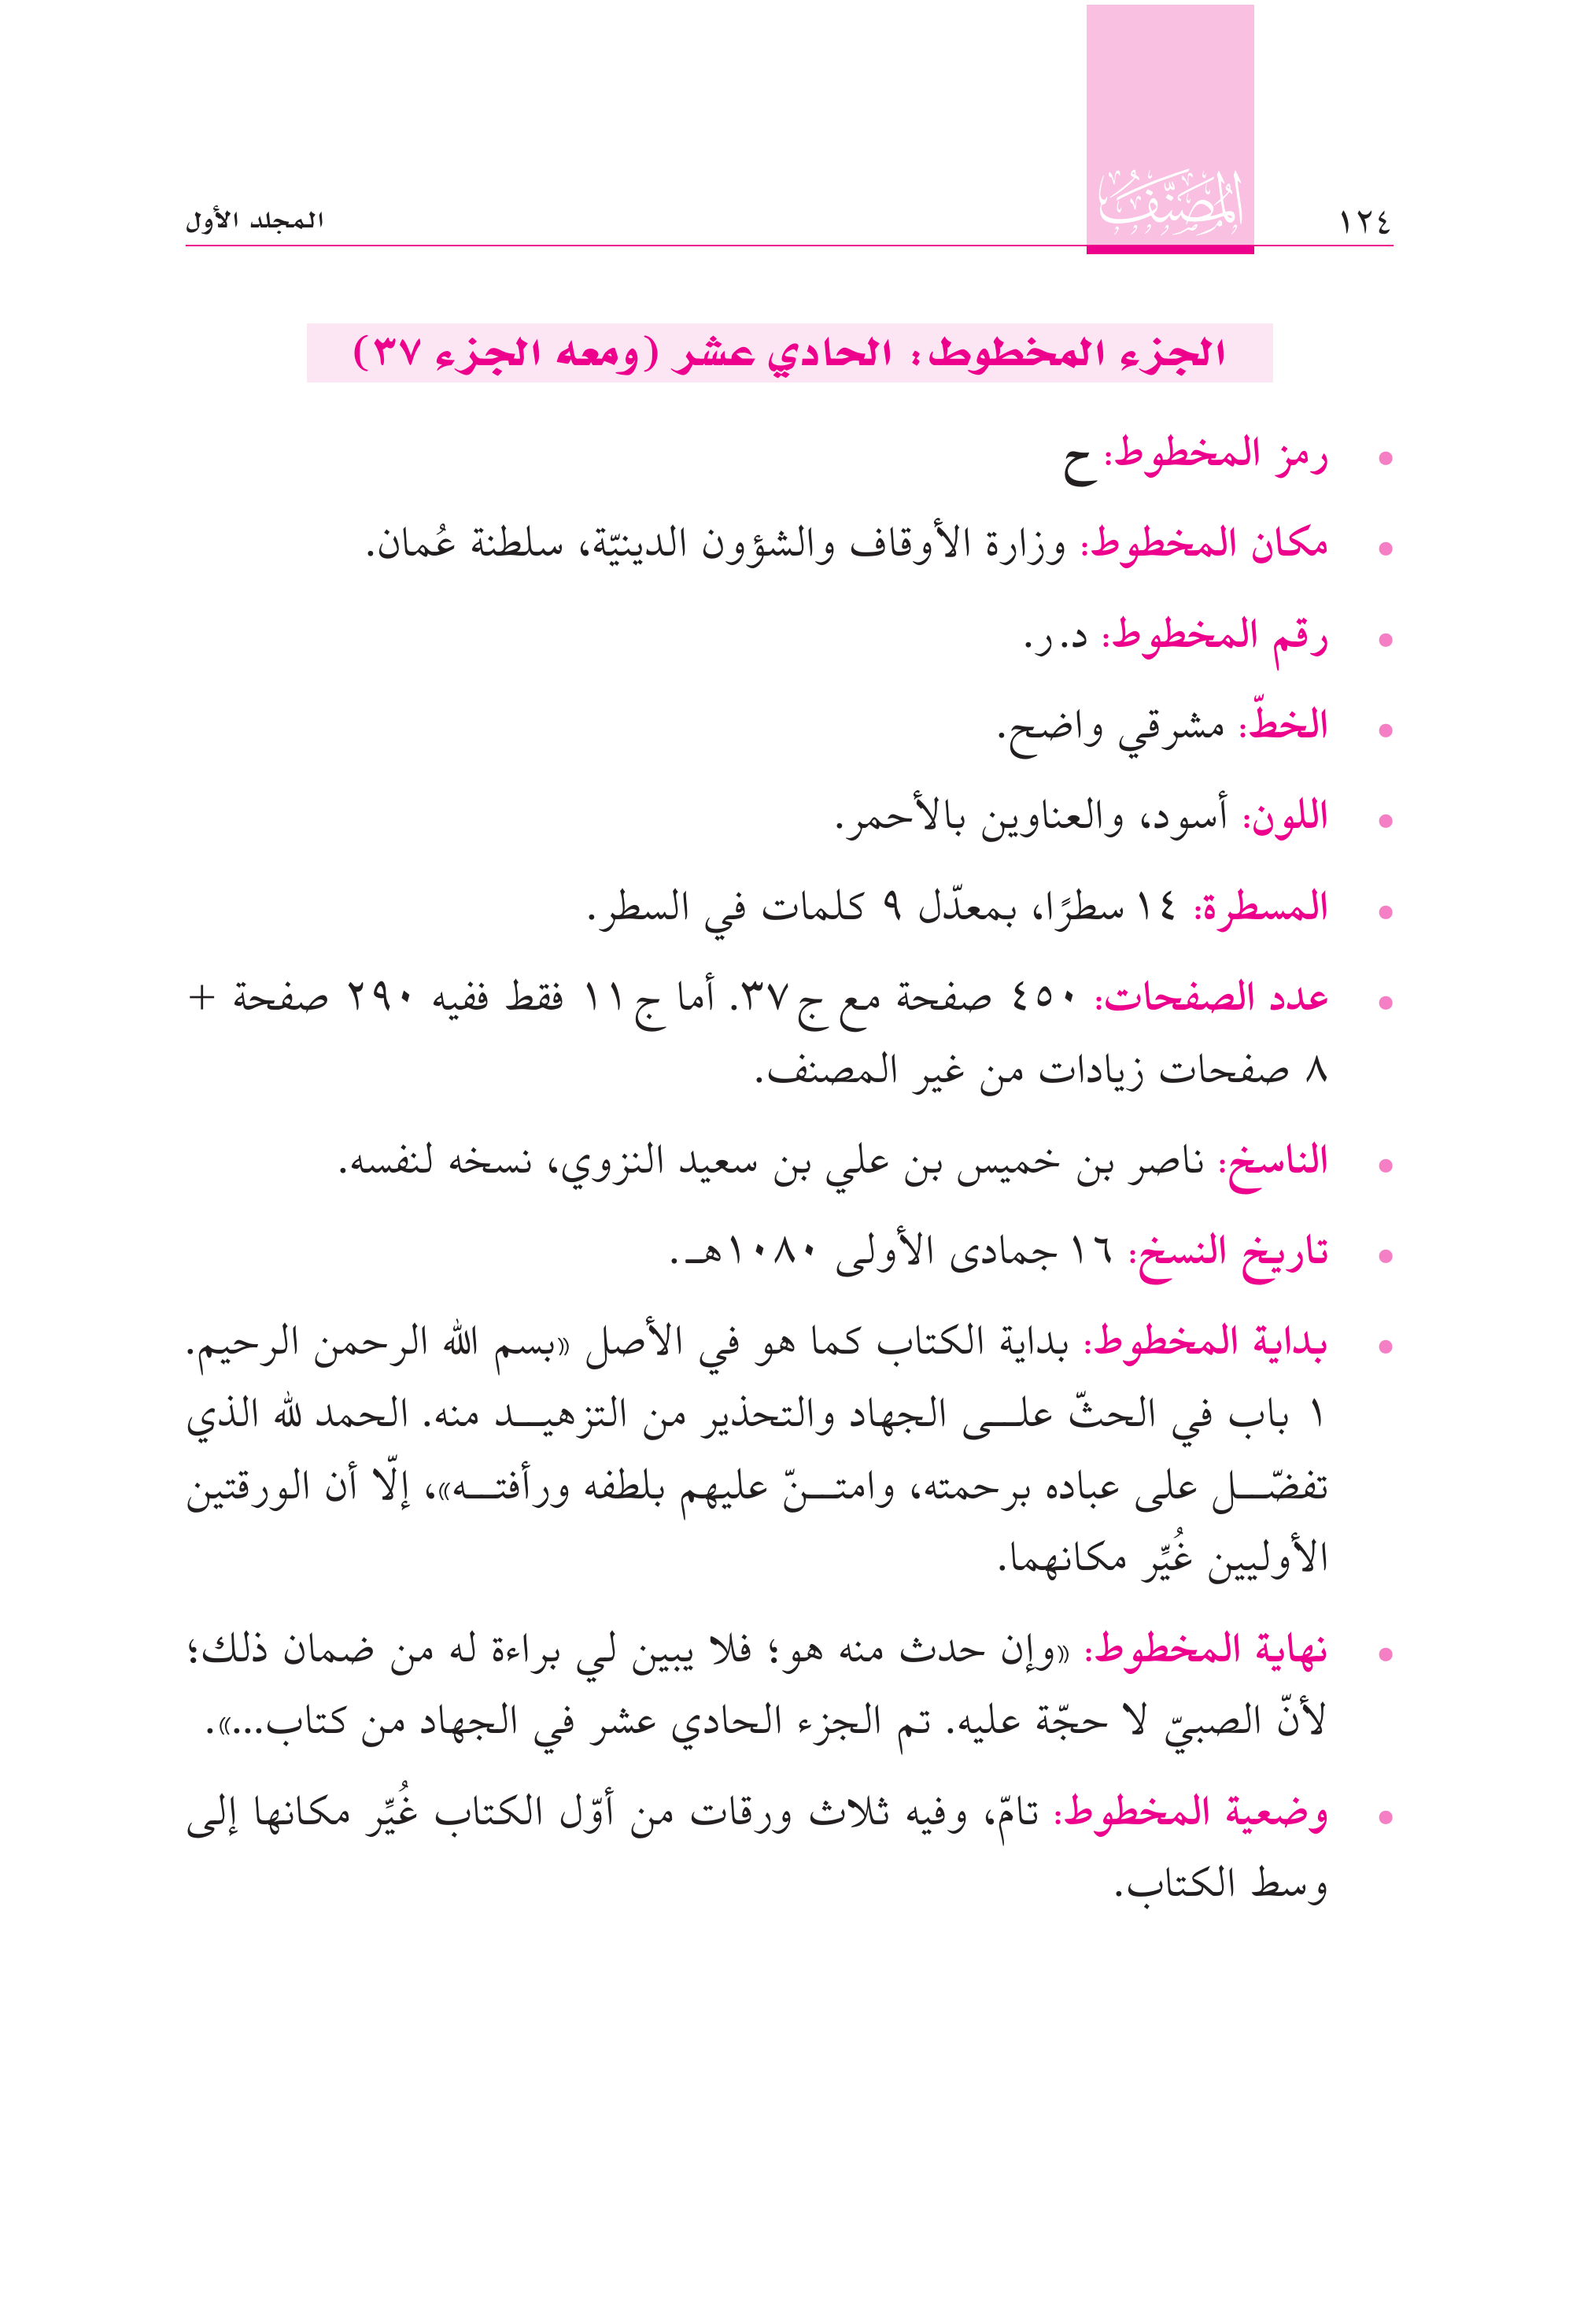 ١٢٤
المصنَّف
المجلد الأول
الجزء المخطوط: الحادي عشر (ومعه الجزء ٣٧)
• رمز المخطوط: ح
• مكان المخطوط: وزارة الأوقاف والشؤون الدينيّة، سلطنة عُمان.
• رقم المخطوط: د.ر.
• الخطّ: مشرقي واضح.
• اللون: أسود، والعناوين بالأحمر.
• المسطرة: ١٤ سطرًا، بمعدّل ٩ كلمات في السطر.
• عدد الصفحات: ٤٥٠ صفحة مع ج٣٧. أما ج١١ فقط ففيه ٢٩٠ صفحة +
٨ صفحات زيادات من غير المصنف.
• الناسخ: ناصر بن خميس بن علي بن سعيد النزوي، نسخه لنفسه.
• تاريخ النسخ: ١٦ جمادى الأولى ١٠٨٠هـ.
• بداية المخطوط: بداية الكتاب كما هو في الأصل «بسم الله الرحمن الرحيم.
١ باب في الحثّ علـــى الجهاد والتحذير من التزهيـــد منه. الحمد لله الذي
تفضّـــل على عباده برحمته، وامتـــنّ عليهم بلطفه ورأفتـــه»، إلّا أن الورقتين
الأوليين غُيِّر مكانهما.
• نهاية المخطوط: «وإن حدث منه هو؛ فلا يبين لي براءة له من ضمان ذلك؛
لأنّ الصبيّ لا حجّة عليه. تم الجزء الحادي عشر في الجهاد من كتاب...».
• وضعية المخطوط: تامّ، وفيه ثلاث ورقات من أوّل الكتاب غُيِّر مكانها إلى
وسط الكتاب.